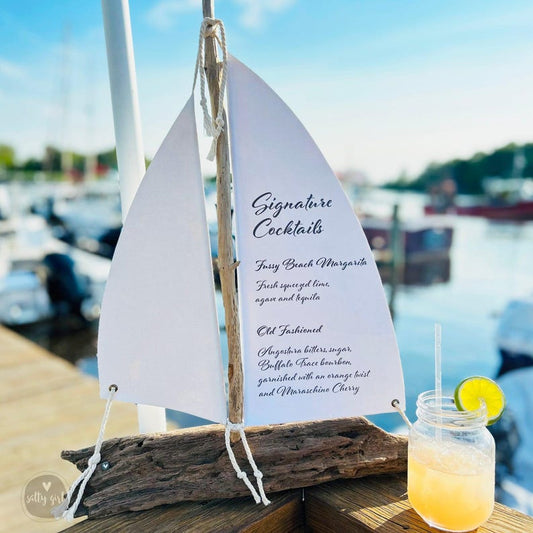 Signature
Cocktails
Fussy Beach Margarita
Fresh squeezed lime,
agave and tequila
Old Fashioned
(Angostura bitters, sugar,
Buffalo Trace bourbon,
garnished with an orange twist
and Maraschino Cherry
salty girl